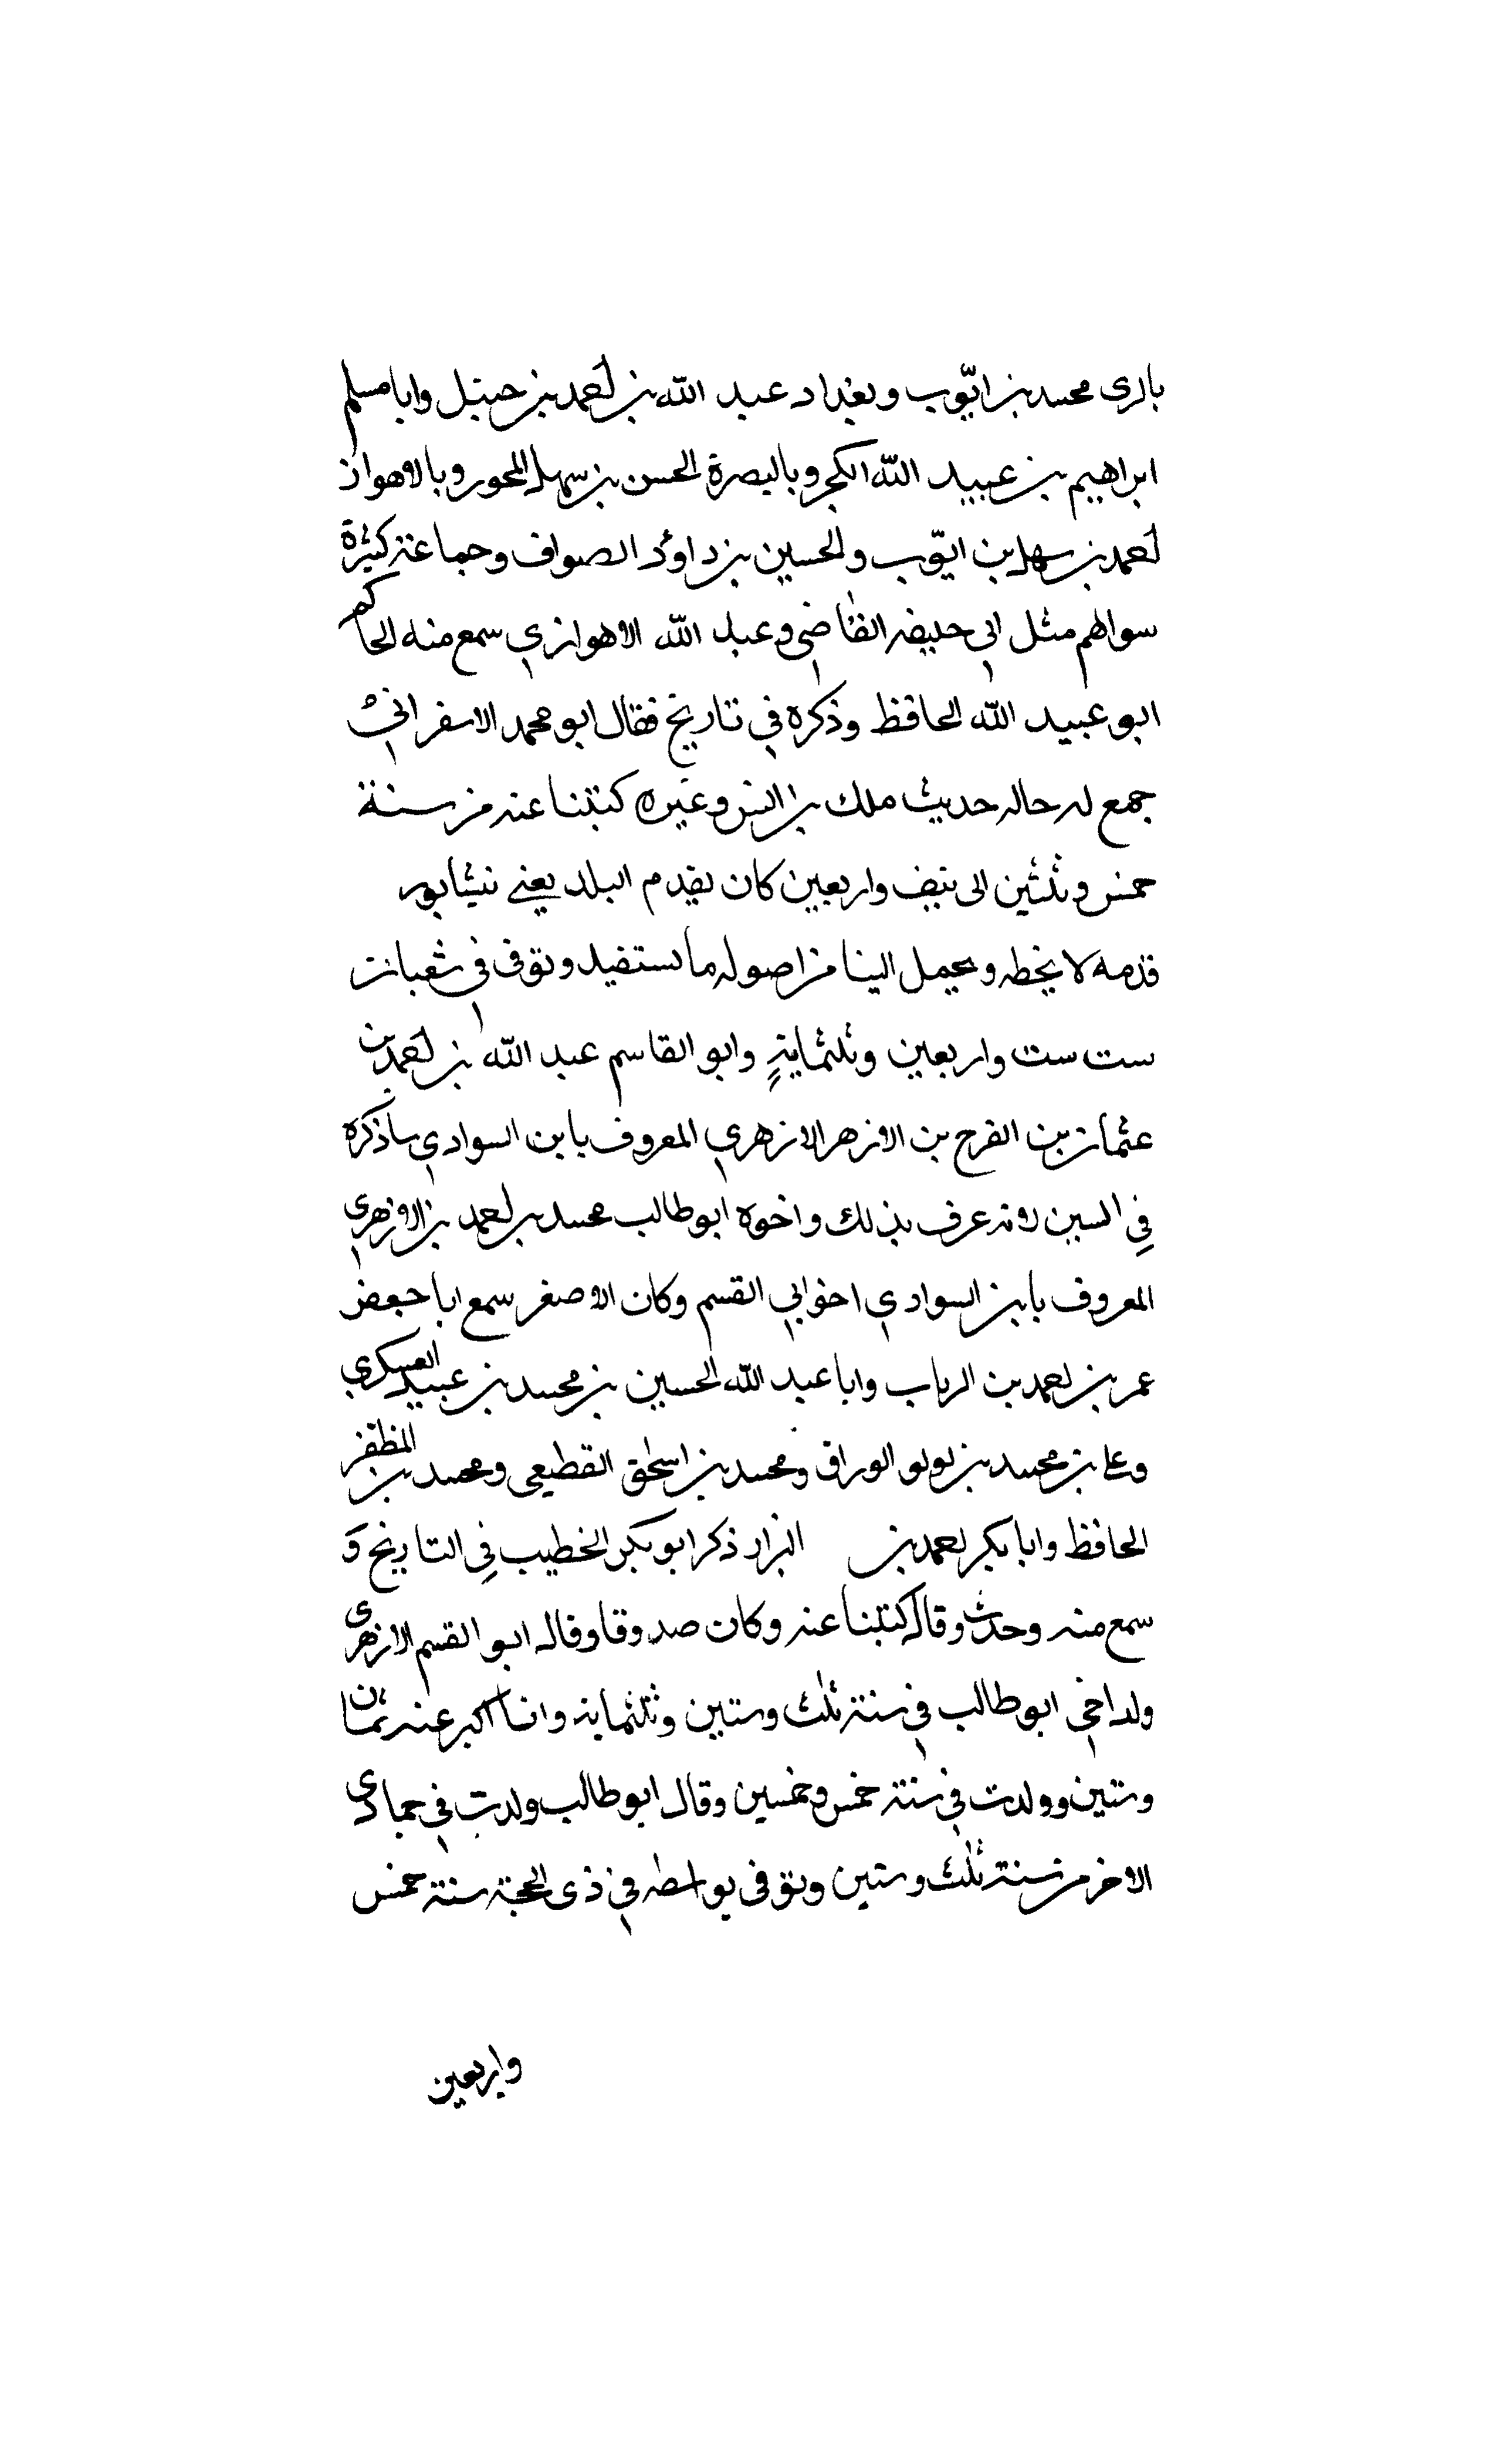 بالرى محمد بن ايّوب وبغداد عبد الله بن احمد بن حنبل وابا مسلم
ابراهيم بن عبيد الله الكجى وبالبصرة الحسن بن سهل المحور وبالاهواز
احمد بن سهل بن ايّوب والحسين بن داؤد الصواف وجماعة كثيرة
سواهم مثل ابى حليفه القاضى وعبد الله الاهوازي سمع منه الحاكم
ابو عبيد الله الحافظ وذكره في تاريخ فقال ابو محمد الاسفرانى
جمع له حاله حديث ملك بن انس وغيره كتبنا عنه من سنة
خمس وثلثين الى نيف واربعين كان يقدم البلد يعني نيشابور
قدمه لا يخطه ويحمل الينا من اصوله ما نستفيد وتوفى في شعبان
ست ست واربعين وثلثماية وابو القاسم عبد الله بن احمد بن
عثمان بن الفرج بن الازهر الازهري المعروف بابن السوادي ساذكره
في السين لانه عرف بذلك واخوه ابو طالب محمد بن احمد بن الازهرى
المعروف بابن السوادي اخو ابي القسم وكان الاصغر سمع ابا حعفر
عمر بن احمد بن الرباب وابا عبد الله الحسين بن محمد بن عبيد العسكري
وعلى بن محمد بن لولو الوراق ومحمد بن اسحق القطيعى ومحمد بن المظفر
الحافظ وابا بكر احمد بن البزار ذكر ابو بكر الخطيب في التاريخ و
سمع منه وحدث وقال كتبنا عنه وكان صدوقا وقال ابو القسم الازهرى
ولد اخي ابو طالب في سنة ثلث وستين وثلثماية وانا اكبر عنه ثمان
وستين وولدت في سنة خمس وخمسين وقال ابو طالب ولدت في جمادى
الاخر من سنة ثلث وستين وتوفى بواسطه في ذى الحجة سنة خمس
واربعين